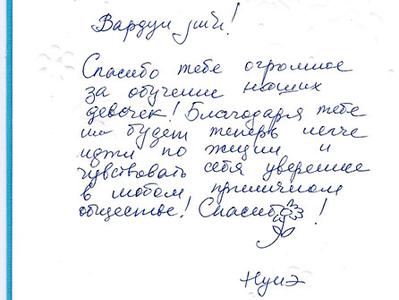 Вардуи джи!
Спасибо тебе огромное
за обучение наших
девочек! Благодаря тебе
им будет теперь легче
идти по жизни и
чувствовать себя увереннее
в любом приличном
обществе! Спасибо!
Нуна